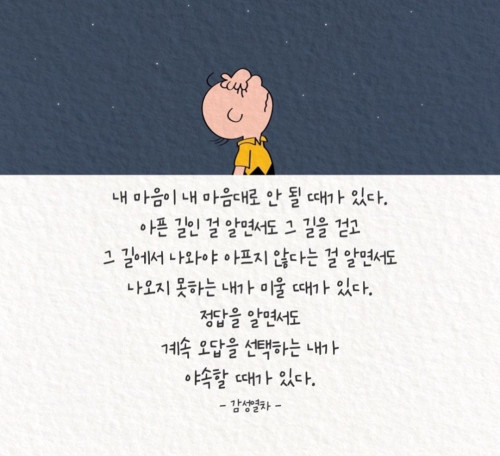 내 마음이 내 마음대로 안 될 때가 있다.
아픈 길인 걸 알면서도 그 길을 걷고
그 길에서 나와야 아프지 않다는 걸 알면서도
나오지 못하는 내가 미울 때가 있다.
정답을 알면서도
계속 오답을 선택하는 내가
야속할 때가 있다.
- 감성열차 -